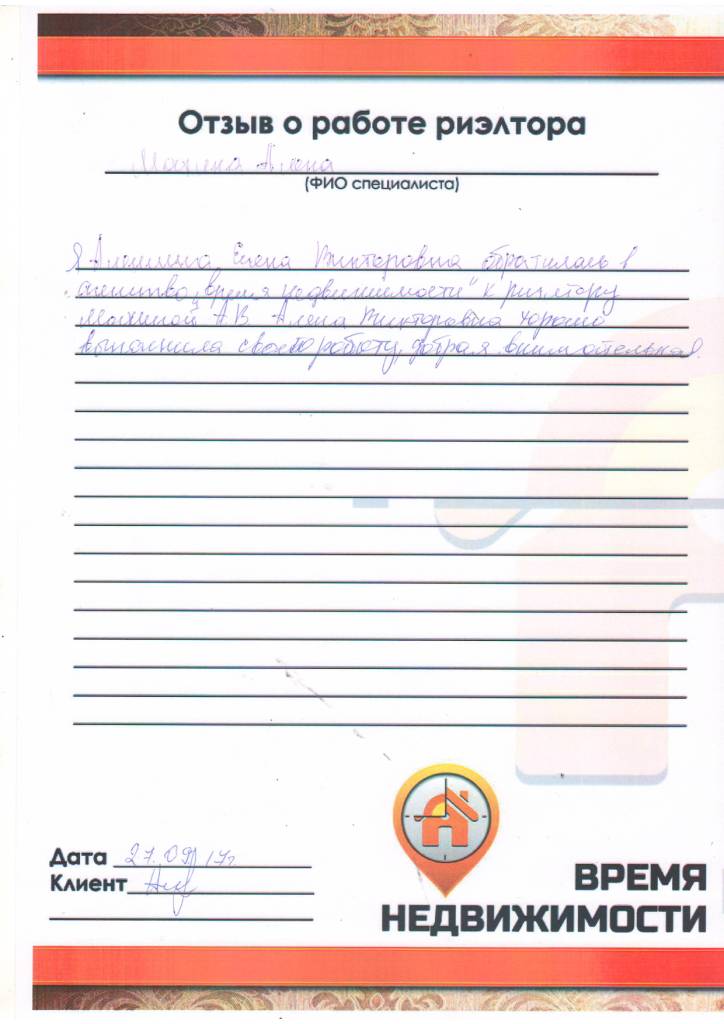 Отзыв о работе риэлтора
Махина Алена
(ФИО специалиста)
Я Елена Викторовна обратилась в
агенство "время недвижимости" к риэлтору
Махиной А.В. Алена Викторовна хорошо
выполнила свою работу, добрая внимательная.
Дата 27.09.17г
Клиент
ВРЕМЯ
НЕДВИЖИМОСТИ